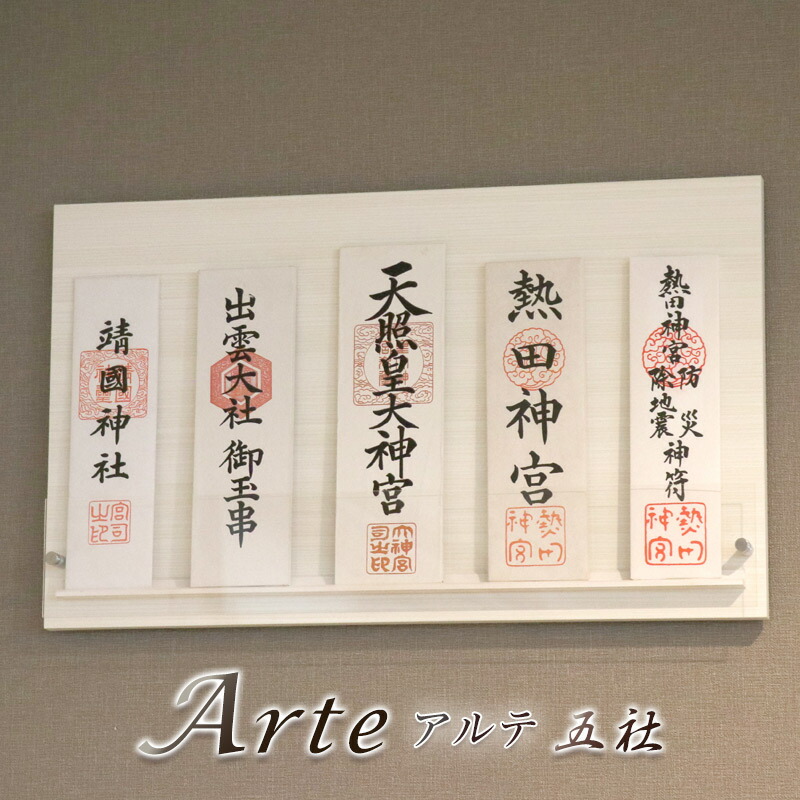 靖國神社
宮司之印
出雲大社 御玉串
天照皇大神宮
大神宮司之印
熱田神宮
熱田神宮
熱田神宮 防災除地震神符
熱田神宮
Arte アルテ 五社